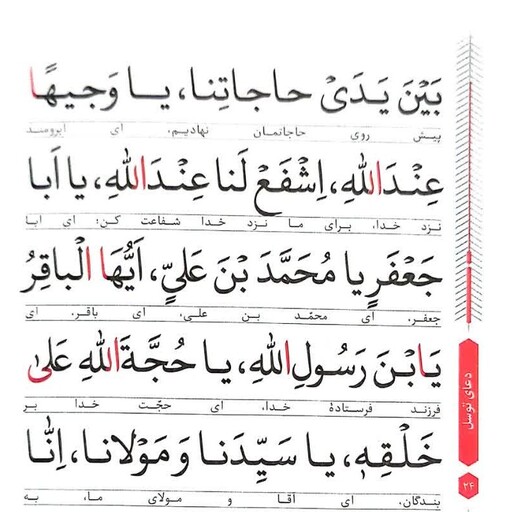 بَیْنَ یَدَیْ حاجاتِنا، یا وَجیهًا
پیش روی حاجاتمان نهادیم. ای آبرومند
عِنْدَاللهِ، اِشْفَعْ لَنا عِنْدَاللهِ، یا اَبا
نزد خدا، برای ما نزد خدا شفاعت کن؛ ای ابا
جَعْفَرٍ یا مُحَمَّدَ بْنَ عَلِیٍّ، اَیُّهَا الْباقِرُ
جعفر، ای محمّد بن علی، ای باقر، ای
یَابْنَ رَسُولِ اللهِ، یا حُجَّةَاللهِ عَلیٰ
فرزند فرستادهٔ خدا، ای حجّت خدا بر
خَلْقِهِ، یا سَیِّدَنا وَ مَوْلانا، اِنّا
بندگان، ای آقا و مولای ما، به
دعای توسل
۲۴